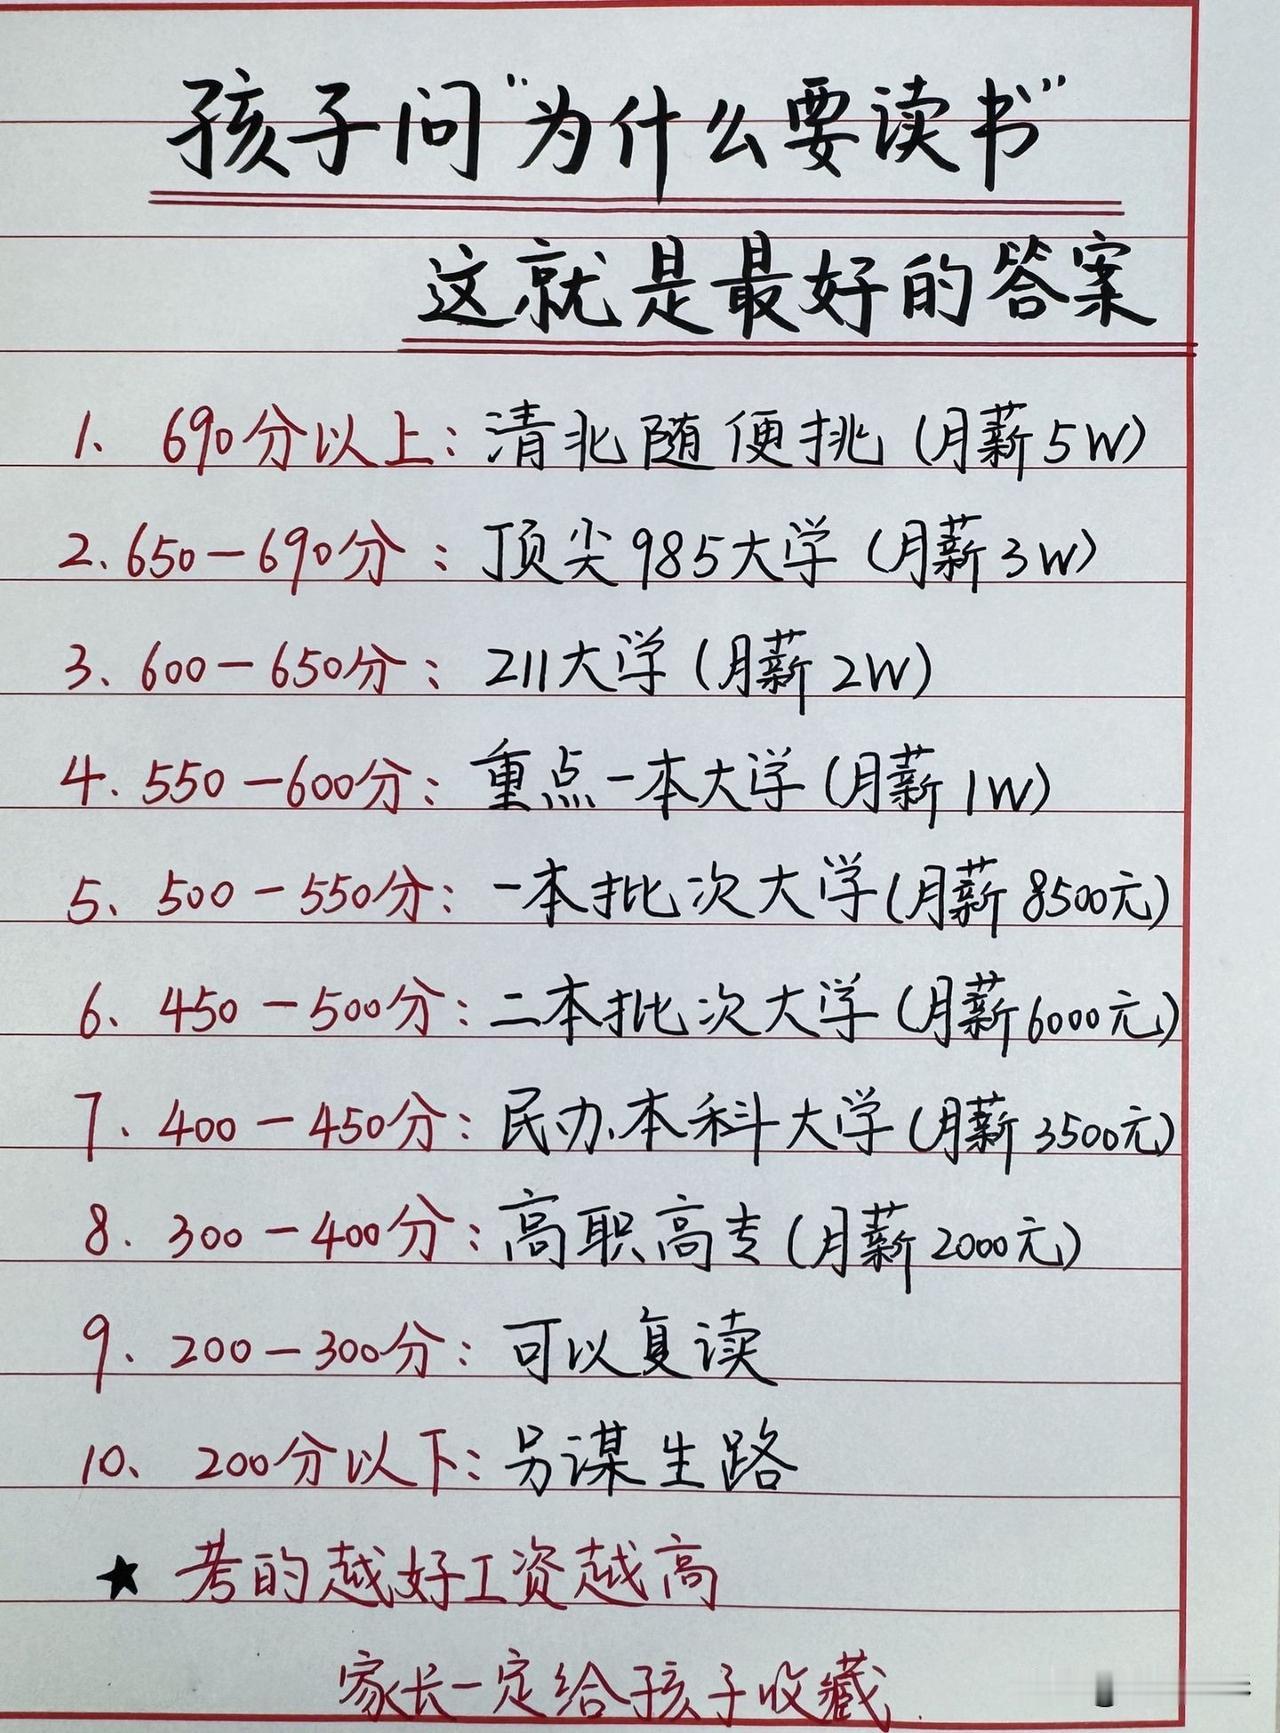 孩子问“为什么要读书”
这就是最好的答案
1、690分以上：清北随便挑（月薪5W）
2、650－690分：顶尖985大学（月薪3W）
3、600－650分：211大学（月薪2W）
4.550－600分：重点一本大学（月薪1W）
5、500－550分：一本批次大学（月薪8500元）
6、450－500分：二本批次大学（月薪6000元）
7.400－450分：民办本科大学（月薪3500元）
8.300－400分：高职高专（月薪2000元）
9.200－300分：可以复读
10、200分以下：另谋生路
★考的越好工资越高
家长一定给孩子收藏